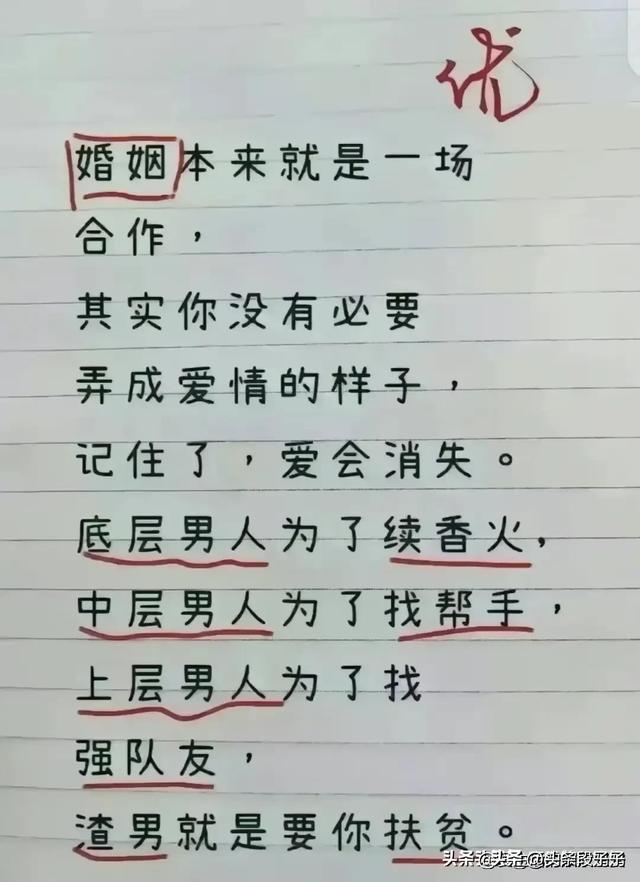 优
婚姻本来就是一场
合作，
其实你没有必要
弄成爱情的样子，
记住了，爱会消失。
底层男人为了续香火，
中层男人为了找帮手，
上层男人为了找
强队友，
渣男就是要你扶贫。